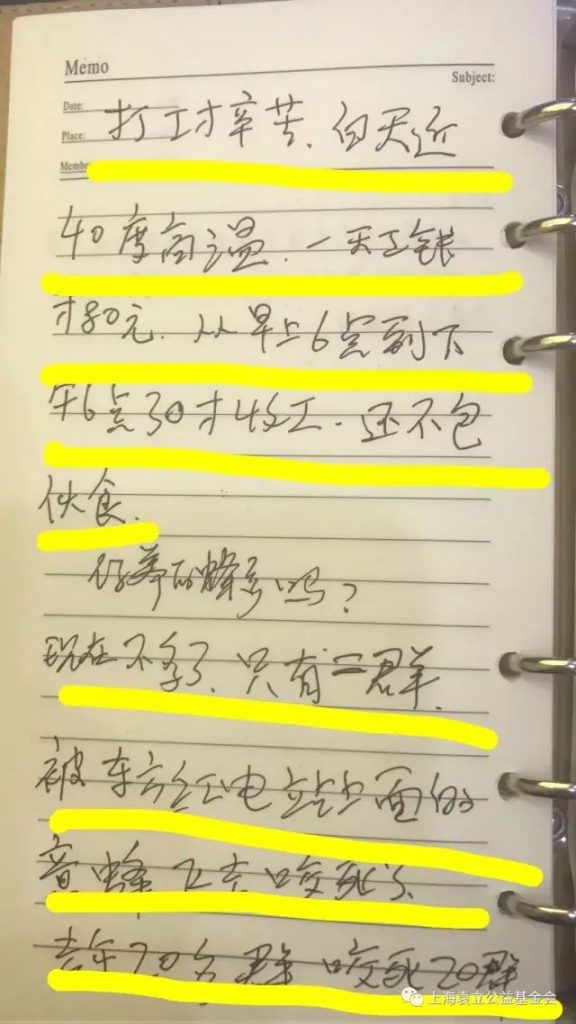 Memo
Subject:
Date:
Place:
打工才辛苦、白天近
40度高温、一天工钱
才80元、从早上6点到下
午6点30才收工、还不包
伙食、
你养的蜂多吗?
现在不多了、只有二群、
被东方红电站上面的
意蜂飞去咬死了、
去年20多群 咬死20群
上海袁立公益基金会